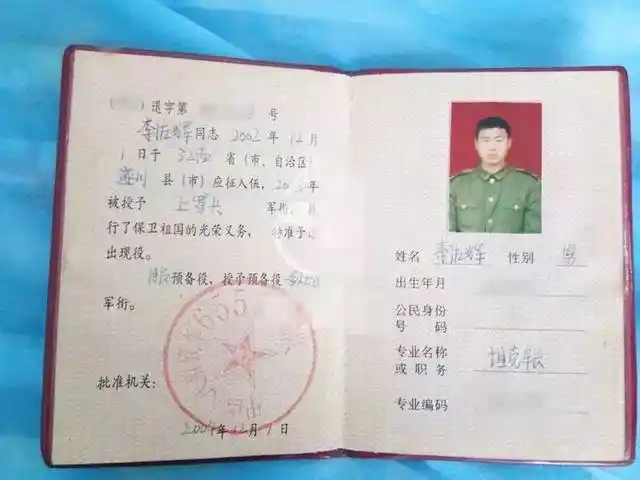 退字第 号
李佐辉同志 2002 年 12 月
1 日于 江西 省(市、自治区)
遂川 县(市)应征入伍,20 年
被授予 上等兵 军衔
行了保卫祖国的光荣义务, 准予
出现役。
服预备役,授予预备役
军衔。
批准机关:
2004年12月1日
姓名 李佐辉 性别 男
出生年月
公民身份
号 码
专业名称 坦克车长
或 职 务
专业编码